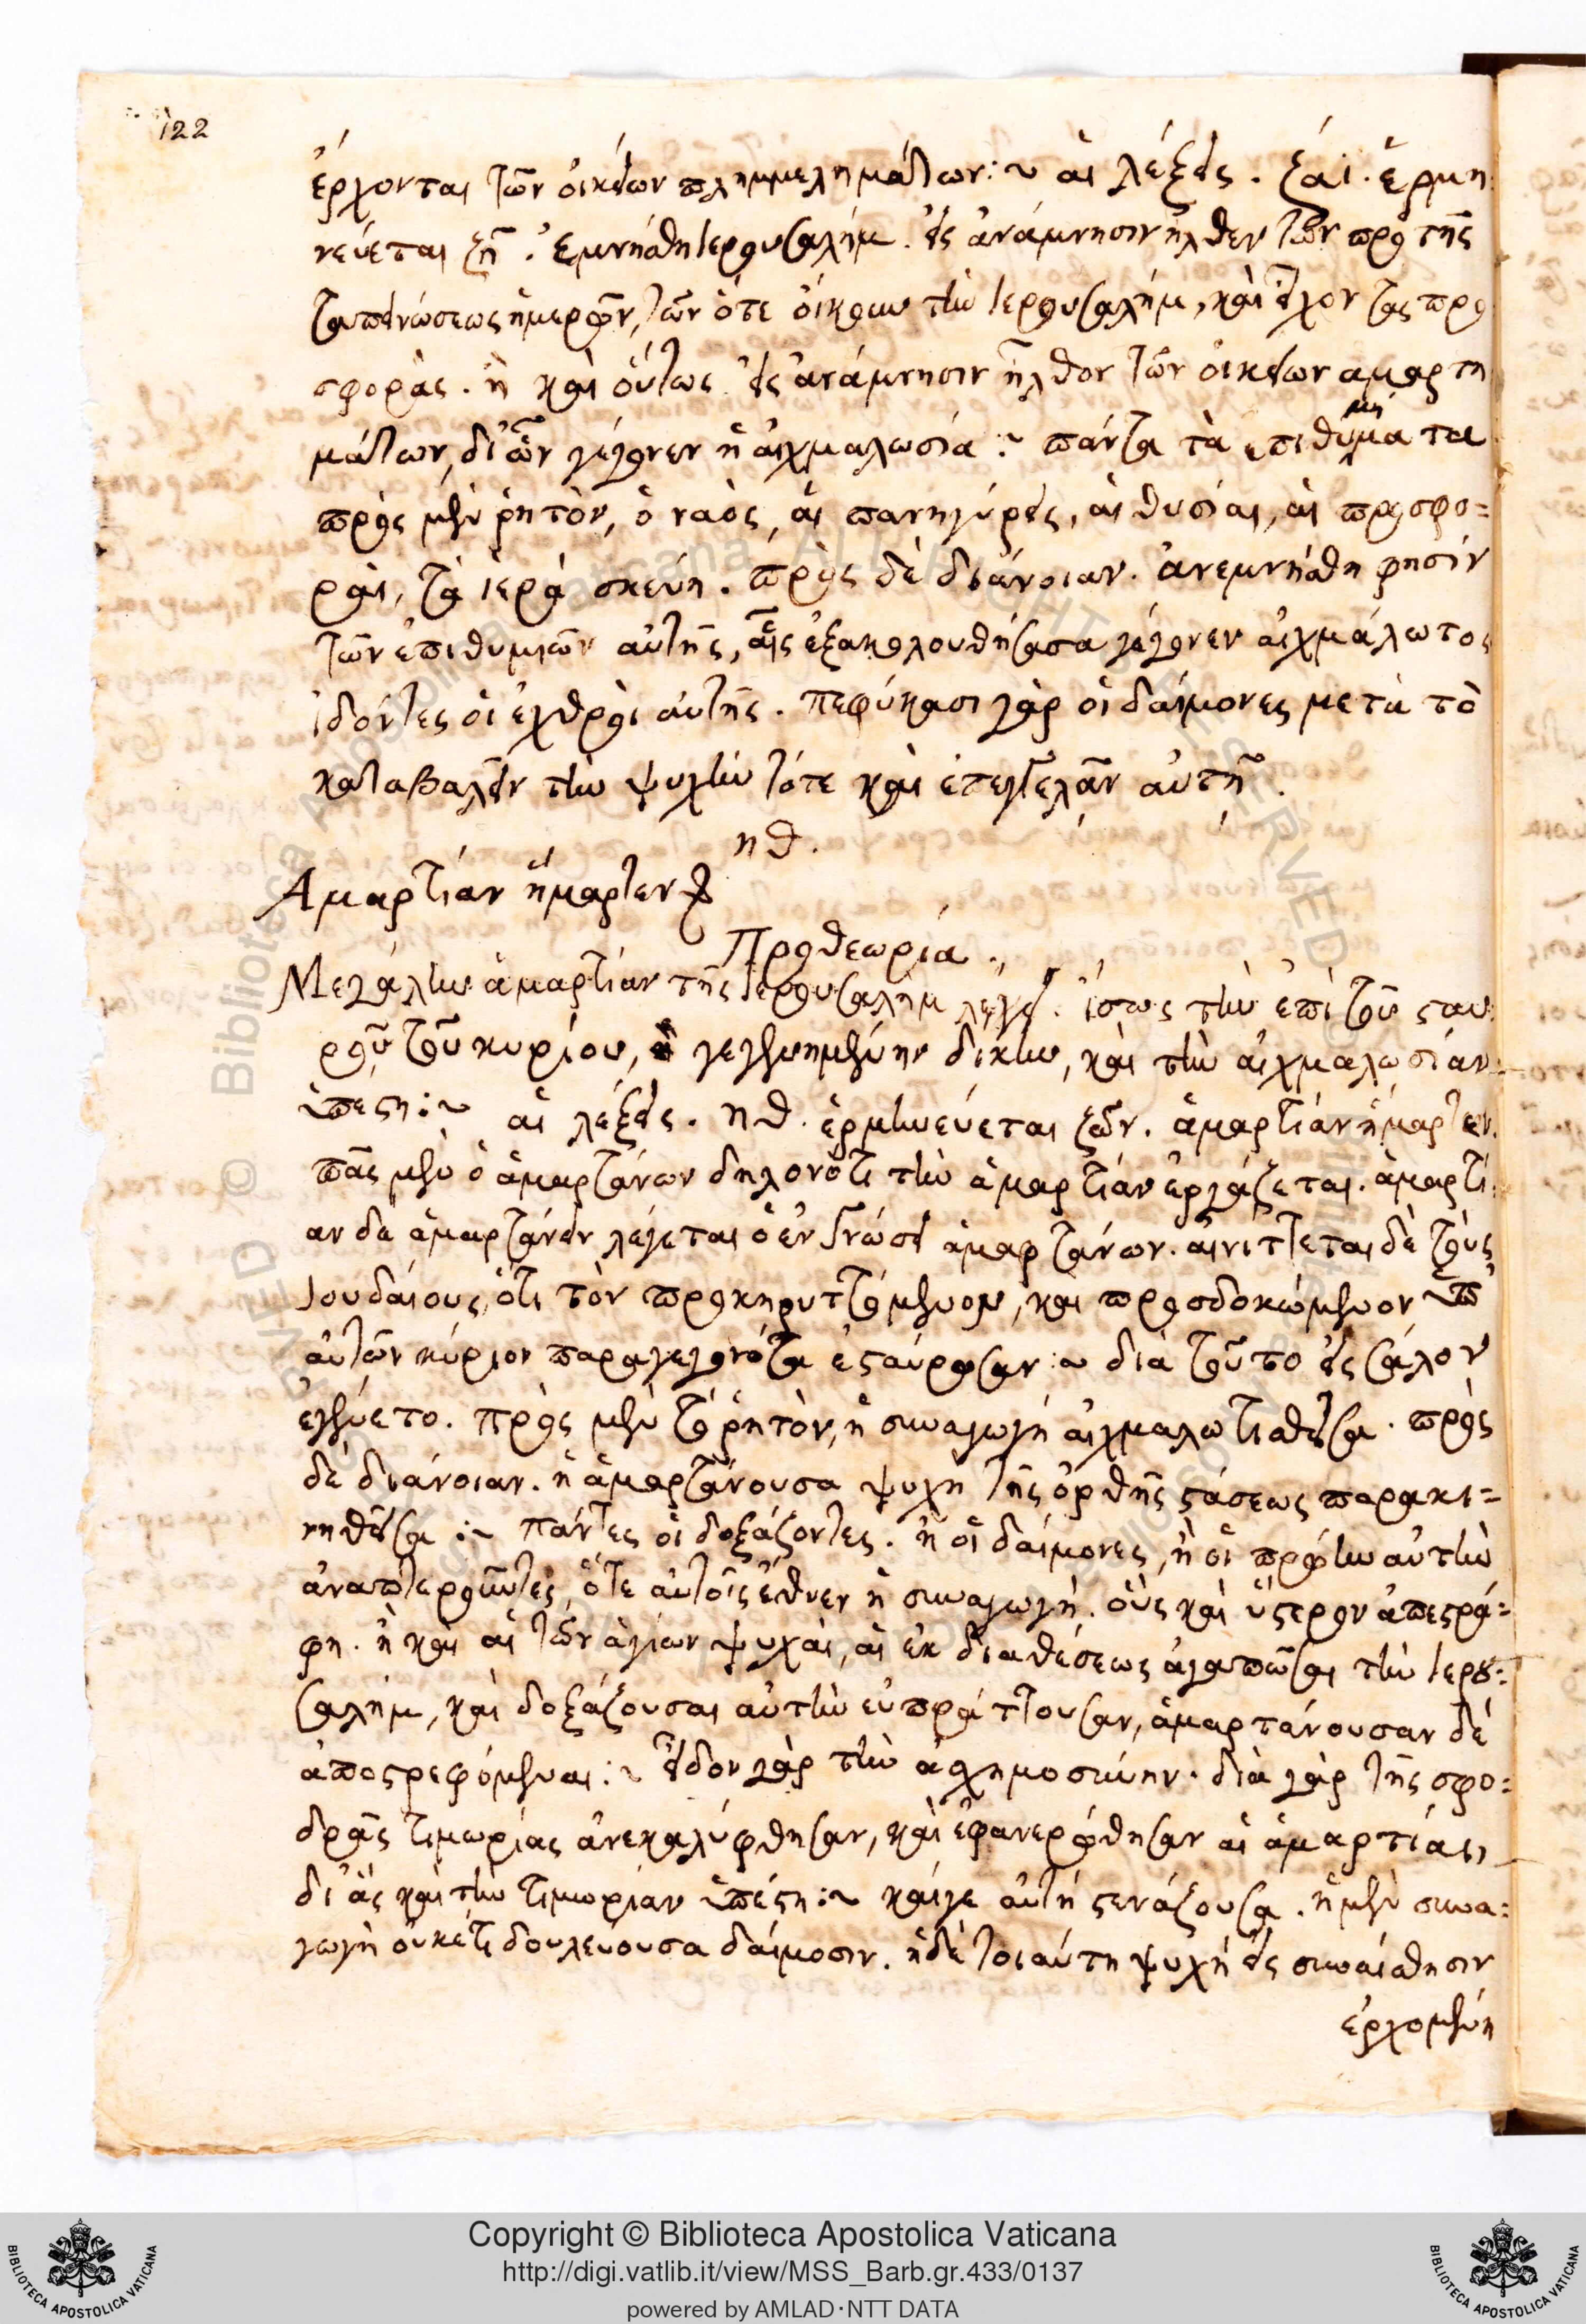 122
ἔρχονται τῶν οἰκείων πλημμελημάτων :~ αἱ λέξεις. ζάϊ. ἑρμη
νεύεται ζῆ. ἐμνήσθη Ιερουσαλήμ. εἰς ἀνάμνησιν ἦλθεν τῶν πρὸ τῆς
ταπεινώσεως ἡμερῶν, τῶν ὅτε ᾤκουν τὴν Ιερουσαλήμ, καὶ εἶχον τὰς προ
σφοράς. ἢ καὶ οὕτως εἰς ἀνάμνησιν ἦλθον τῶν οἰκείων ἁμαρτη
μάτων, δι' ὧν γέγονεν ἡ αἰχμαλωσία :~ πάντα τὰ ἐπιθυμήματα
πρὸς μὲν ῥητὸν, ὁ ναὸς, αἱ πανηγύρεις, αἱ θυσίαι, αἱ προσφο=
ραὶ, τὰ ἱερὰ σκεύη. πρὸς δὲ διάνοιαν. ἀνεμνήσθη φησὶν
τῶν ἐπιθυμιῶν αὐτῆς, αἷς ἐξακολουθήσασα γέγονεν αἰχμάλωτος
ἰδόντες οἱ ἐχθροὶ αὐτῆς. πεφύκασι γὰρ οἱ δαίμονες μετὰ τὸ
καταβαλεῖν τὴν ψυχὴν τότε καὶ ἐπεγγελᾶν αὐτῇ.
ηθ.
Αμαρτίαν ἥμαρτεν
Προθεωρία.
Μεγάλην ἁμαρτίαν τῆς Ιερουσαλὴμ λέγει. ἴσως τὴν ἐπὶ τοῦ σταυ
ροῦ τοῦ κυρίου, γεγενημένην δίκην, καὶ τὴν αἰχμαλωσίαν
ὑπέστη :~ αἱ λέξεις. ηθ. ἑρμηνεύεται ζῶν. ἁμαρτίαν ἥμαρτεν.
πᾶς μὲν ὁ ἁμαρτάνων δηλονότι τὴν ἁμαρτίαν ἐργάζεται. ἁμαρτί
αν δὲ ἁμαρτάνειν λέγεται ὁ ἐν γνώσει ἁμαρτάνων. αἰνίττεται δὲ τοὺς
Ιουδαίους, ὅτι τὸν προκηρυττόμενον, καὶ προσδοκώμενον ὑπ'
αὐτῶν κύριον παραγεγονότα ἐσταύρωσαν :~ διὰ τοῦτο εἰς σάλον
ἐγένετο. πρὸς μὲν τὸ ῥητὸν, ἡ συναγωγὴ αἰχμαλωτισθεῖσα. πρὸς
δὲ διάνοιαν. ἡ ἁμαρτάνουσα ψυχὴ τῆς ὀρθῆς στάσεως παρακι=
νηθεῖσα :~ πάντες οἱ δοξάζοντες. ἢ οἱ δαίμονες, ἢ οἱ πρώτην αὐτὴν
ἀναπτεροῦντες, ὅτε αὐτοῖς ἔθυεν ἡ συναγωγή. οὓς καὶ ὕστερον ἀπεστρά=
φη. ἢ καὶ αἱ τῶν ἁγίων ψυχαὶ, αἱ ἐκ διαθέσεως ἀγαπῶσαι τὴν Ιερου=
σαλὴμ, καὶ δοξάζουσαι αὐτὴν εὐπράττουσαν, ἁμαρτάνουσαν δὲ
ἀποστρεφόμεναι :~ εἶδον γὰρ τὴν ἀσχημοσύνην. διὰ γὰρ τῆς σφο=
δρᾶς τιμωρίας ἀνεκαλύφθησαν, καὶ ἐφανερώθησαν αἱ ἁμαρτίαι,
δι' ἃς καὶ τὴν τιμωρίαν ὑπέστη :~ καίγε αὐτὴ στενάζουσα. ἡ μὲν συνα=
γωγὴ οὐκέτι δουλεύουσα δαίμοσιν. ἡ δὲ τοιαύτη ψυχὴ εἰς συναίσθησιν
ἐρχομένη
Copyright © Biblioteca Apostolica Vaticana
http://digi.vatlib.it/view/MSS_Barb.gr.433/0137
powered by AMLAD·NTT DATA